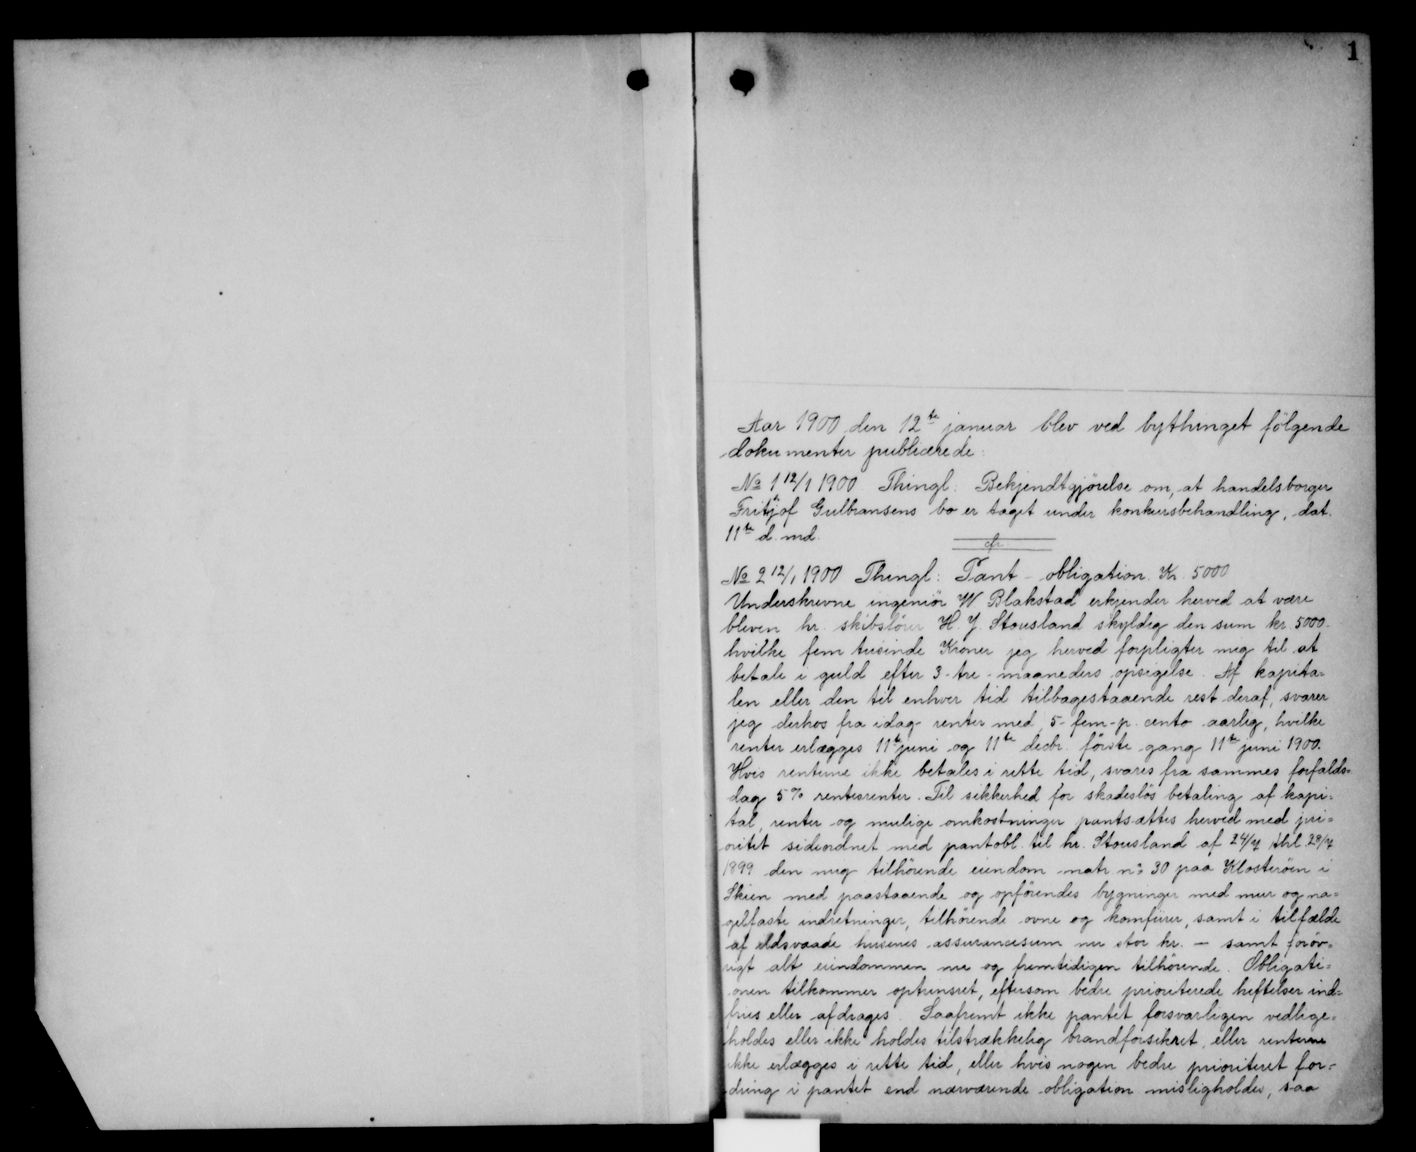 1
Aar 1900 den 12te januar blev ved bythinget følgende
dokumenter publicerede:
No 1 12/1 1900 Thingl: Bekjendtgjørelse om, at handelsborger
Fritjof Gulbransens bo er taget under konkursbehandling, dat.
11te d. md.
No 2 12/1 1900 Thingl: Pant-obligation Kr. 5000
Underskrevne ingeniør W Blakstad erkjender herved at være
bleven hr. H. J. Stousland skyldig den sum kr 5000.
hvilke fem tusinde Kroner jeg herved forpligter mig til at
betale i guld efter 3-tre-maaneders opsigelse. Af kapita-
len eller den til enhver tid tilbagestaaende rest deraf, svarer
jeg derhos fra idag renter med 5-fem-p. cento aarlig, hvilke
renter erlægges 11te juni og 11te decbr. første gang 11te juni 1900.
Hvis renterne ikke betales i rette tid, svares fra sammes forfalds=
dag 5% rentesrenter. Til sikkerhed for skadesløs betaling af kapi=
tal, renter og mulige omkostninger pantsættes herved med pri=
oritet sideordnet med pantobl. til hr. Stousland af 24/7 thl. 28/7
1899 den mig tilhørende eiendom matr no 30 paa Klosterøen i
Skien med paastaaende og opførendes bygninger med mur og na=
gelfaste indretninger, tilhørende ovne og komfurer, samt i tilfælde
af ildsvaade husenes assurancesum nu stor kr. — samt forøv=
rigt alt eiendommen nu og fremtidigen tilhørende. Obligati=
onen tilkommer optrinsret, eftersom bedre prioriterede heftelser ind=
fries eller afdrages. Saafremt ikke pantet forsvarligen vedlige=
holdes eller ikke holdes tilstrækkelig brandforsikret, eller renterne
ikke erlægges i rette tid, eller hvis nogen bedre prioriteret for=
dring i pantet end nærværende obligation misligholdes, saa